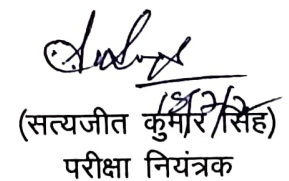 (सत्यजीत कुमार सिंह)
परीक्षा नियंत्रक